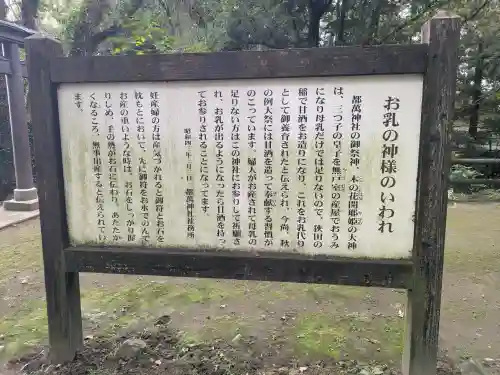 お乳の神様のいわれ
都萬神社の御祭神、木の花開耶姫の大神
は、三つ子の皇子を無戸室の産屋でおうみ
になり母乳だけでは足りないので、狭田の
稲で甘酒をお造りになり、これをお乳代り
として御養育されたと伝えられ、今尚、秋
の例大祭には甘酒を造って奉献する習慣が
のこっています。婦人がお産されて母乳の
足りない方はこの神社にお参りして祈願さ
れ、お乳が出るようになったら甘酒を持っ
てお参りされることになってます。
昭和四 都萬神社社務所
妊産婦の方は産気づかれると御符とお石を
枕もとにおいて、先に御符をお水でのんで
お産の重いような時は、お石をしっかり握
りしめ、手の熱がお石に伝わり、あたたか
くなるころ、無事出産すると伝えられてい
ます。